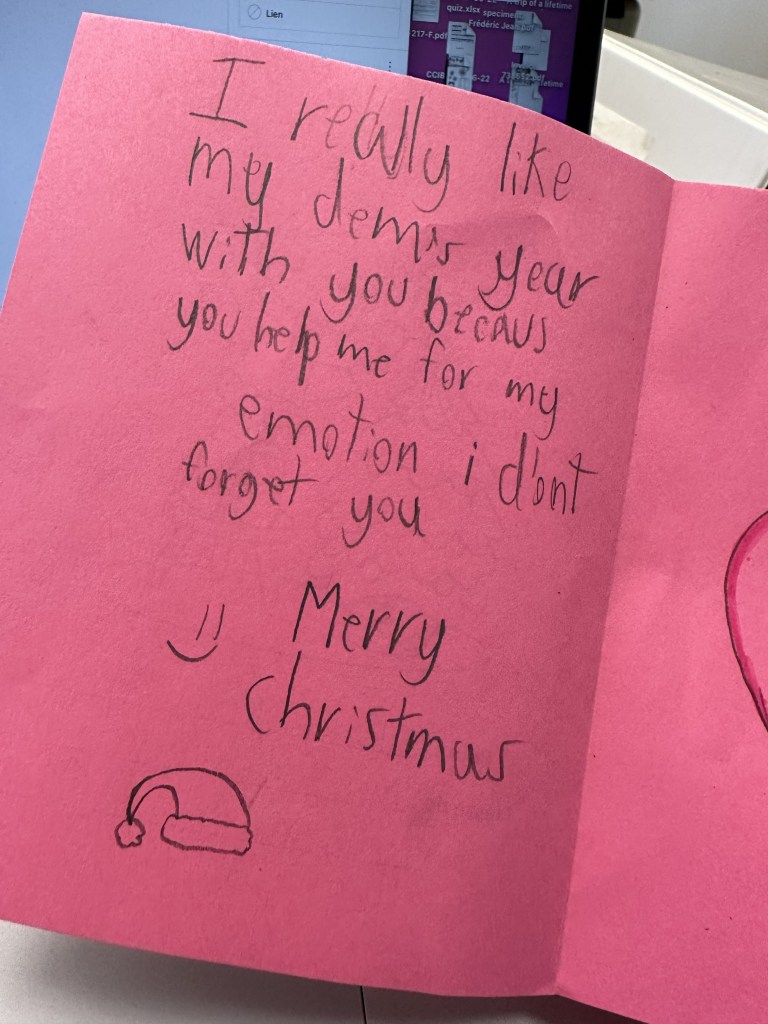 Lien
quiz.xlsx
specimen
Frédéric Jean.pdf
217-F.pdf
CCIB
I really like
my demis year
with you becaus
you help me for my
emotion i d'ont
forget you
Merry
christmas